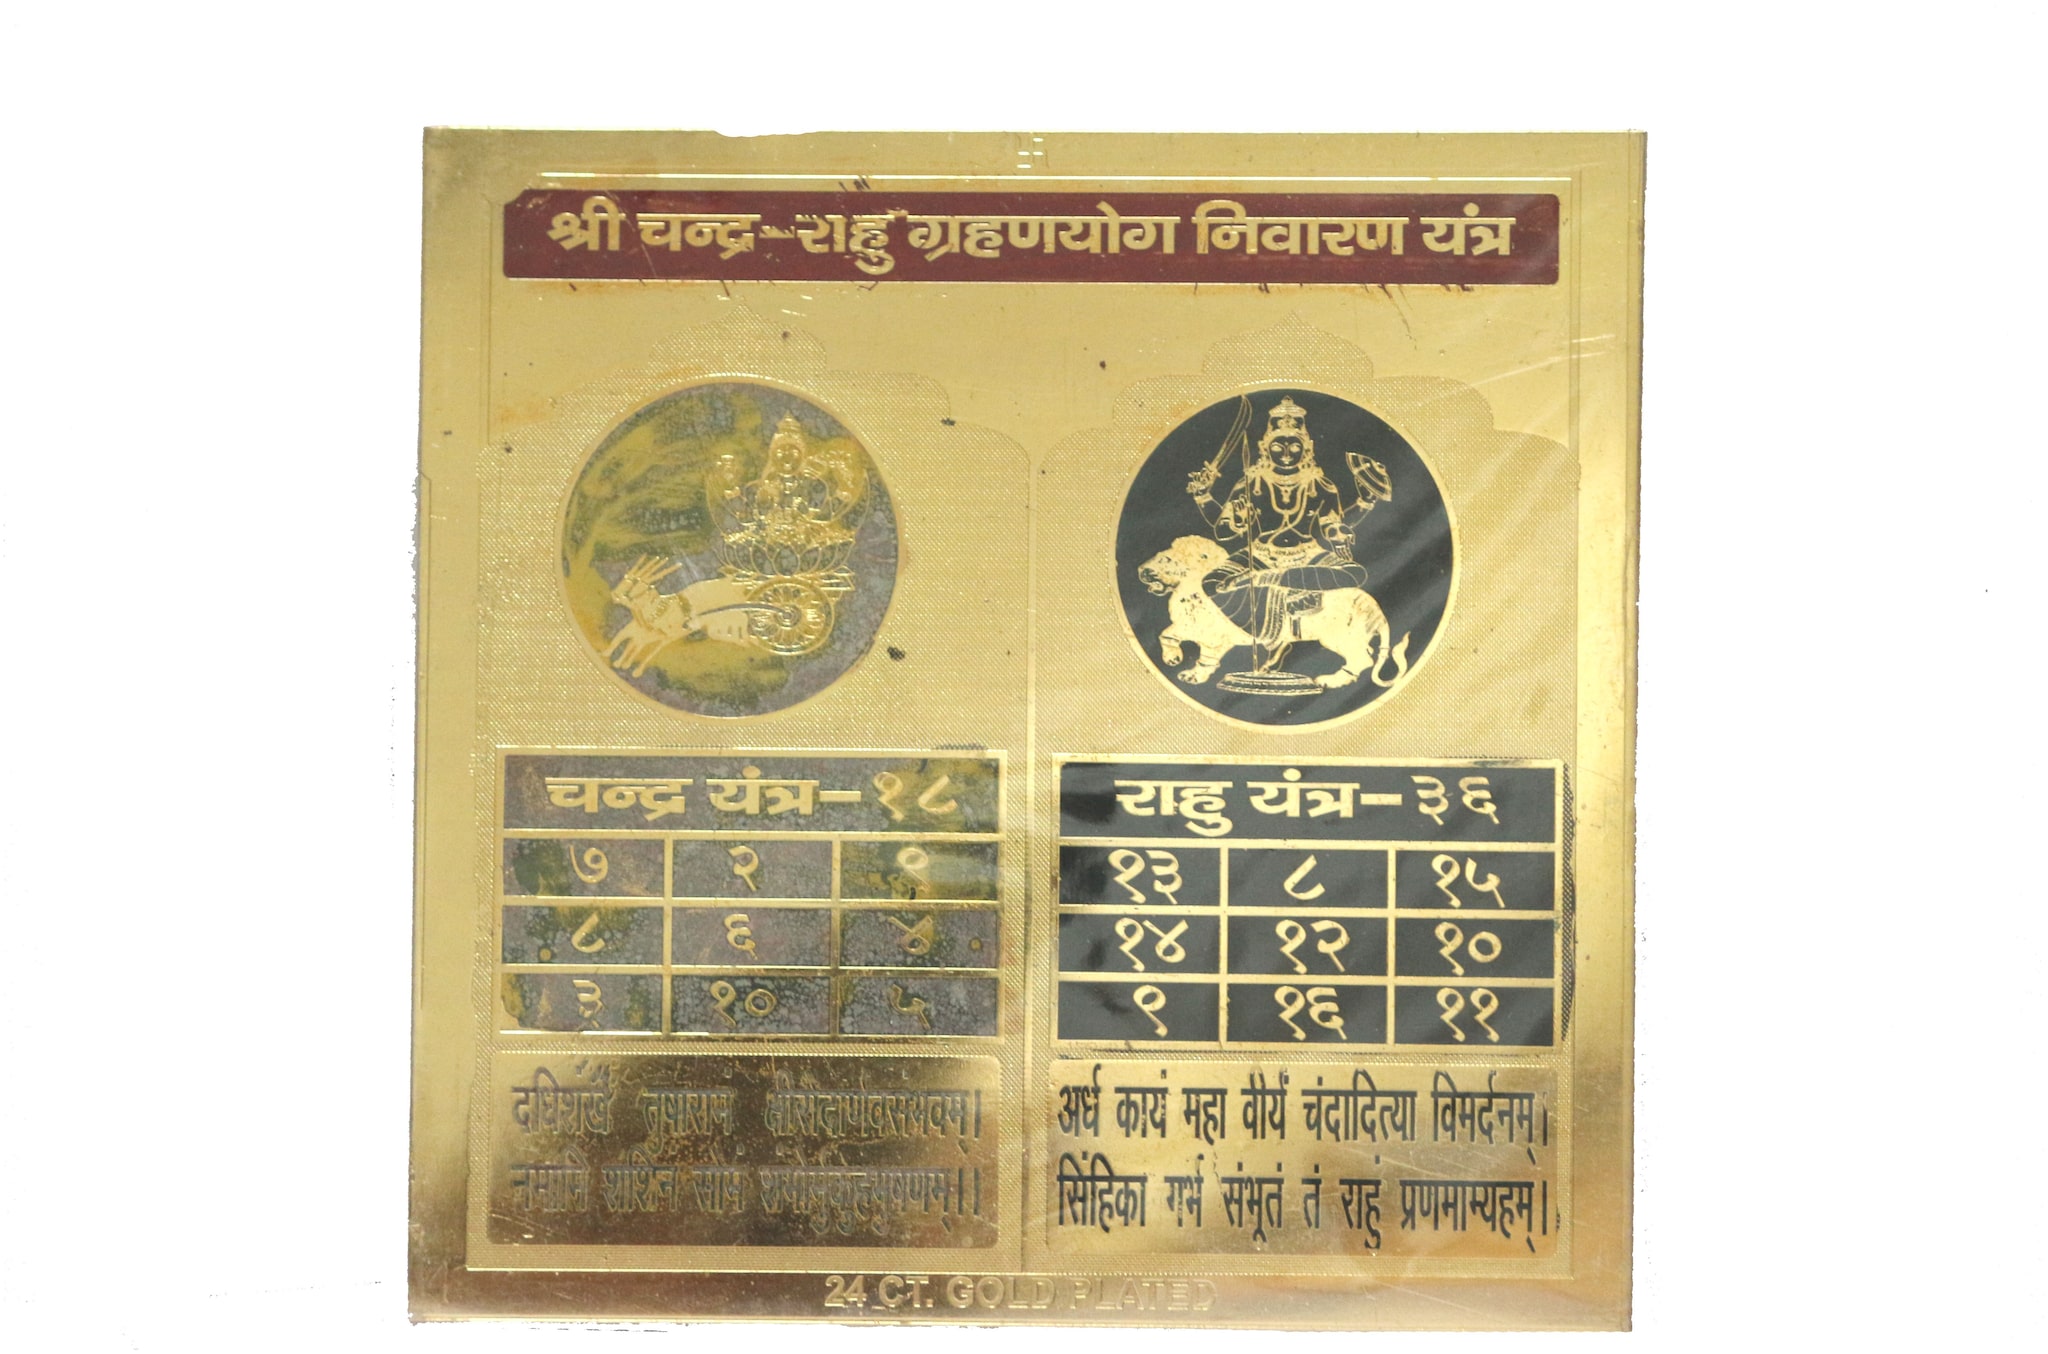 श्री चन्द्र-राहु ग्रहणयोग निवारण यंत्र
चन्द्र यंत्र-१८
७ २ ९
८ ६ ४
३ १० ५
दधिशंखं तुषाराभं क्षीरोदार्णवसंभवम्।
नमामि शशिनं सोमं
राहु यंत्र-३६
१३ ८ १५
१४ १२ १०
९ १६ ११
अर्ध कायं महा वीर्यं चंदादित्या विमर्दनम्।
सिंहिका गर्भ संभूतं तं राहुं प्रणमाम्यहम्।
24 CT. GOLD PLATED